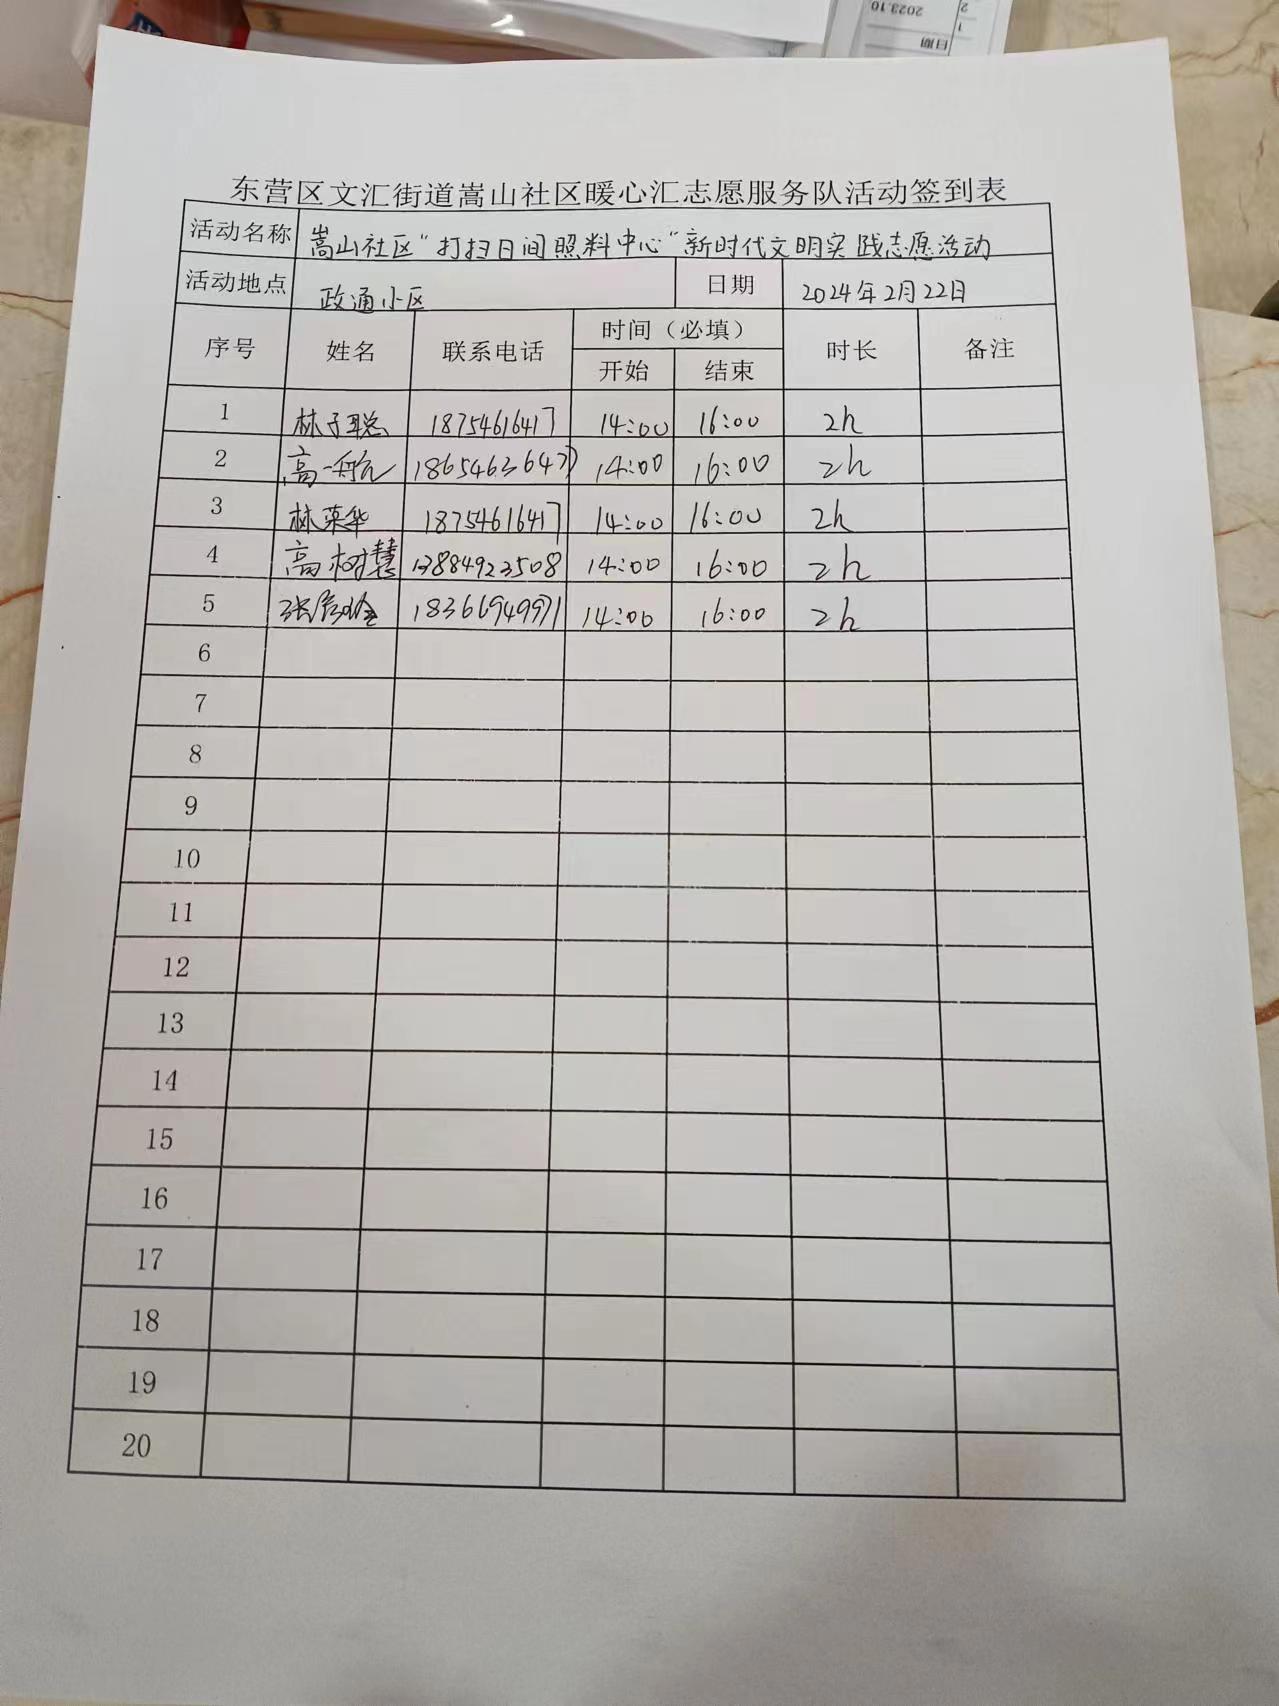 2023.10
日期
1
2
东营区文汇街道嵩山社区暖心汇志愿服务队活动签到表
活动名称 嵩山社区“打扫日间照料中心”新时代文明实践志愿活动
活动地点 政通小区 日期 2024年2月22日
序号 姓名 联系电话 时间（必填） 时长 备注
开始 结束
1 林子聪 18754616417 14:00 16:00 2h
2 高一航 18654636477 14:00 16:00 2h
3 林荣华 18754616417 14:00 16:00 2h
4 高树慧 13884923508 14:00 16:00 2h
5 18366949971 14:00 16:00 2h
6
7
8
9
10
11
12
13
14
15
16
17
18
19
20